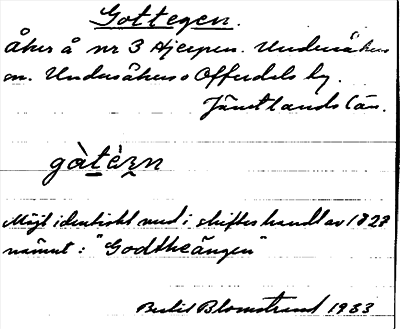 Gottegen.
Åker å nr 3 Hjerpen. Undersåkers
sn. Undersåkers o Offerdals tg.
Jämtlands län.
gàtèn
Möjl identiskt med i skifteshandl av 1828
nämnt: "Godtheängen"
Bertil Blomstrand 1933